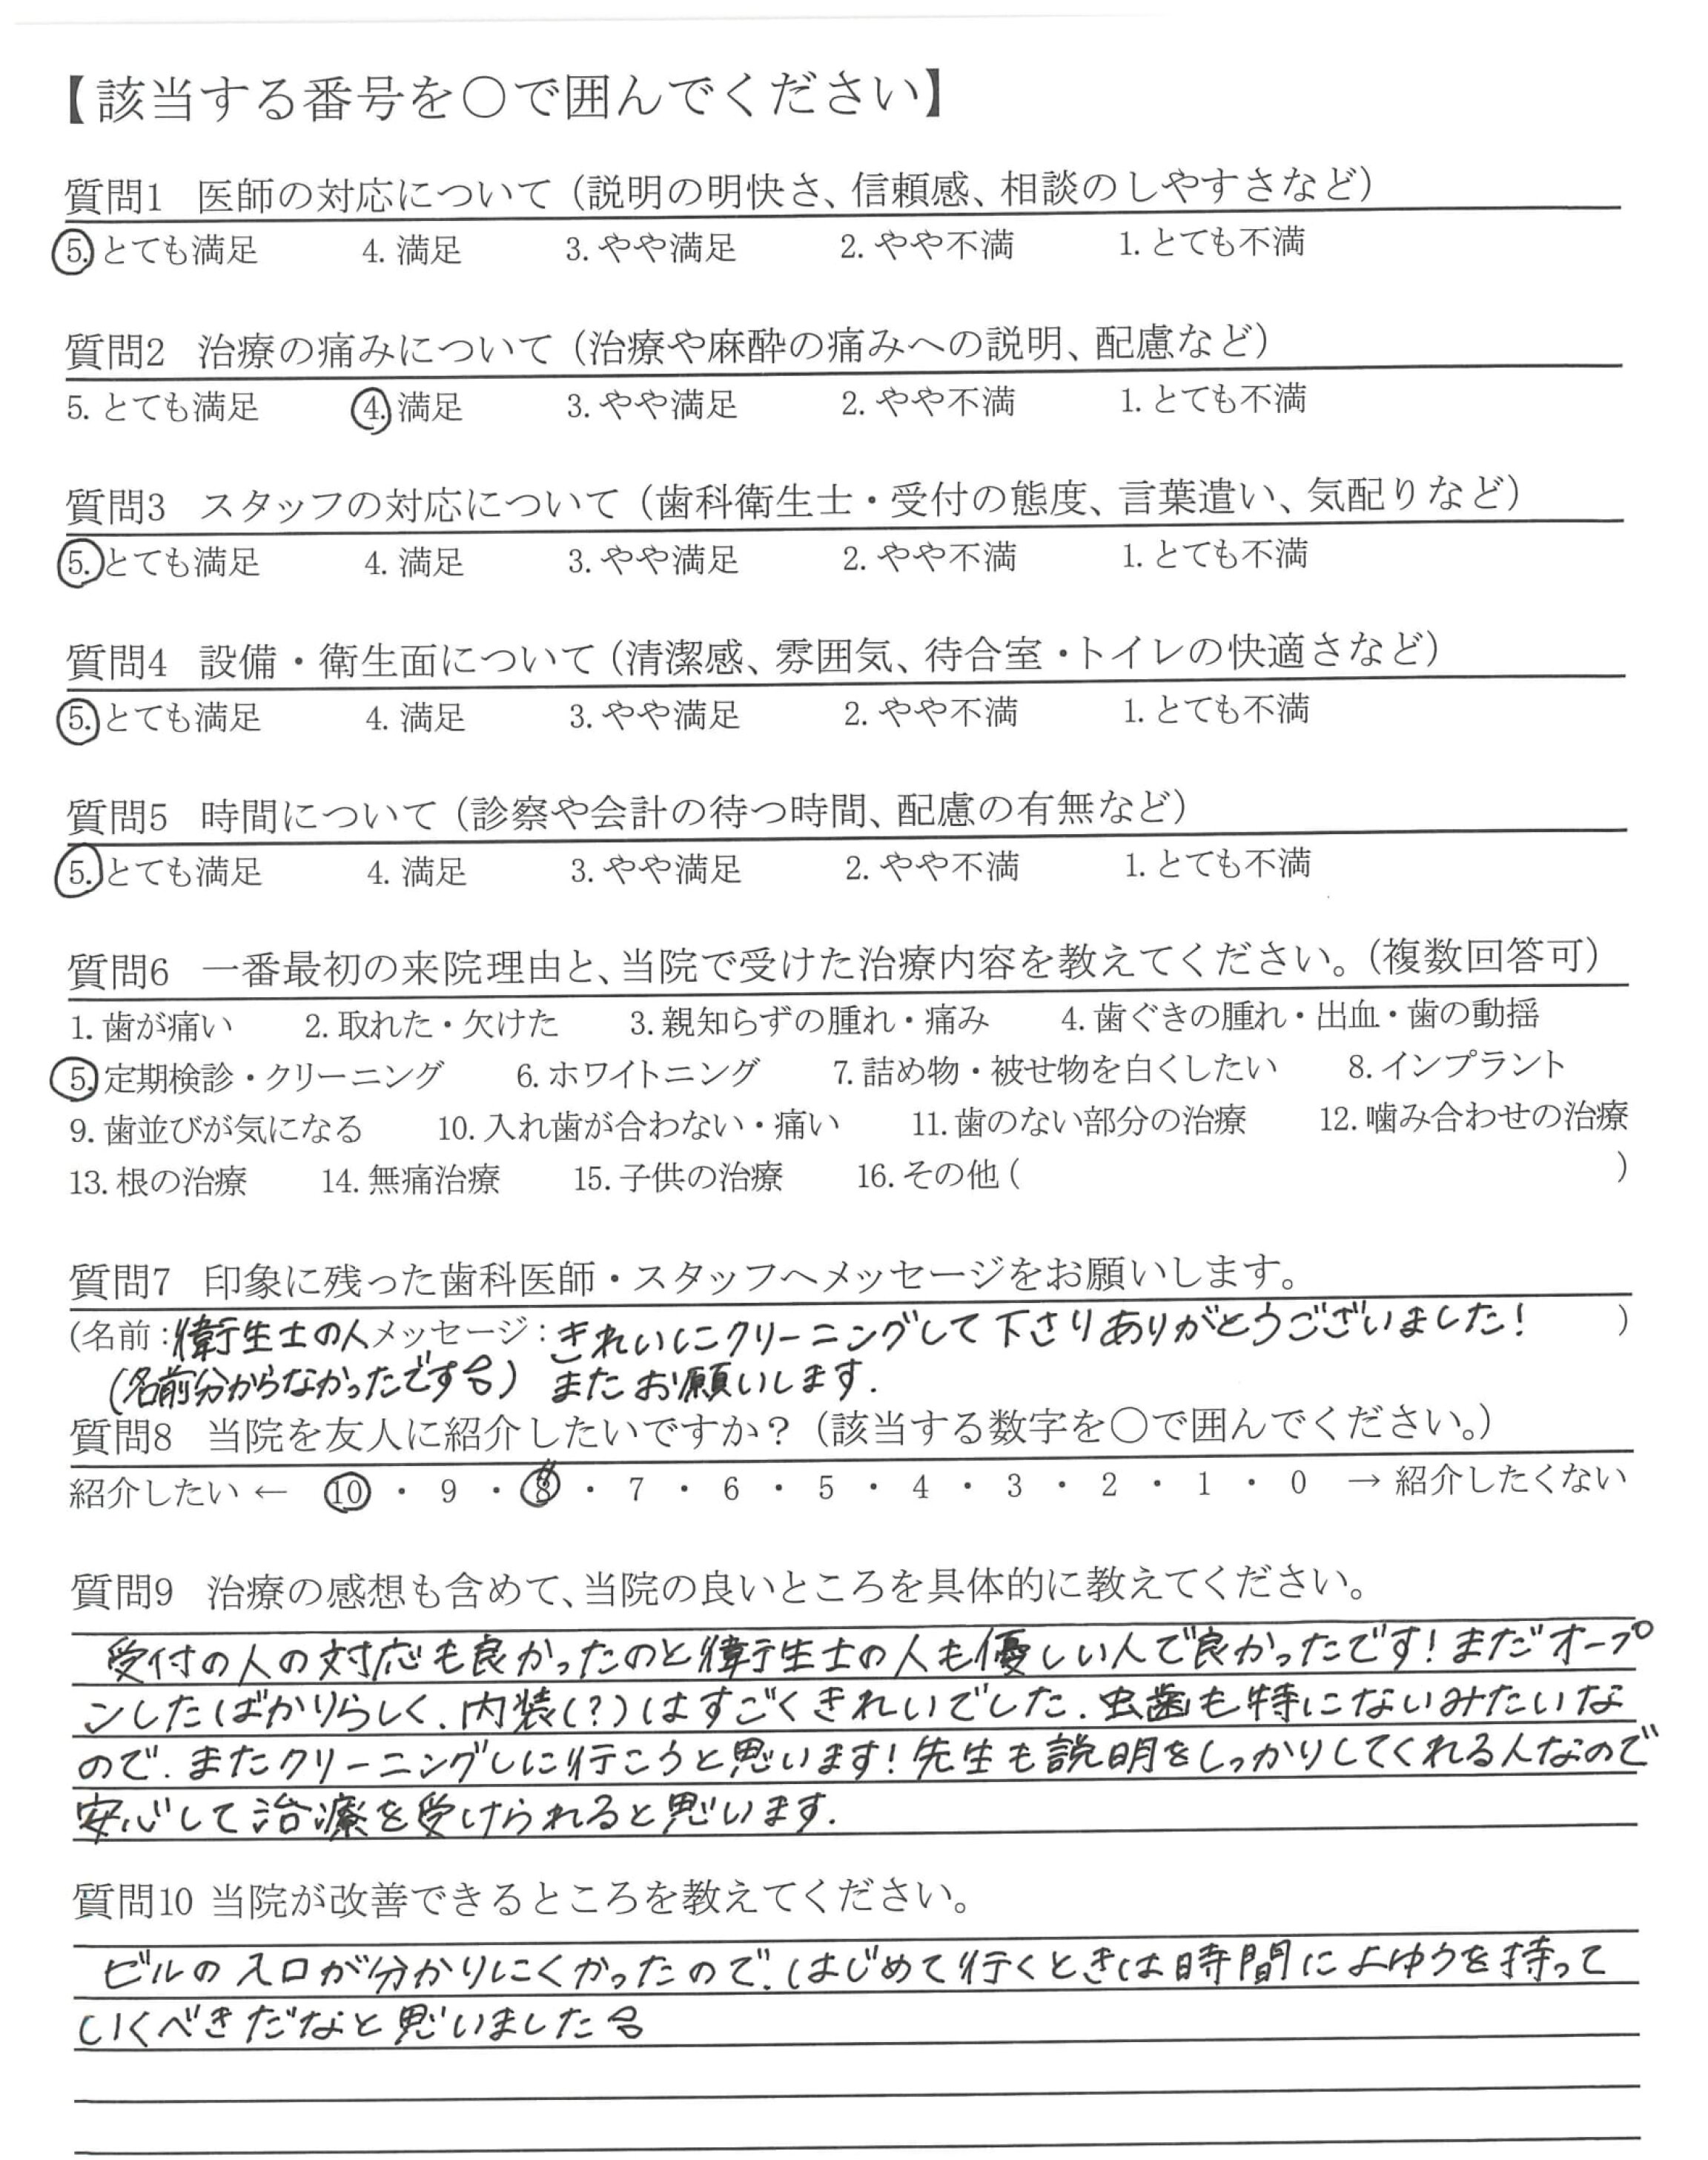 【該当する番号を〇で囲んでください】
質問1 医師の対応について（説明の明快さ、信頼感、相談のしやすさなど）
5. とても満足 4. 満足 3. やや満足 2. やや不満 1. とても不満
質問2 治療の痛みについて（治療や麻酔の痛みへの説明、配慮など）
5. とても満足 4. 満足 3. やや満足 2. やや不満 1. とても不満
質問3 スタッフの対応について（歯科衛生士・受付の態度、言葉遣い、気配りなど）
5. とても満足 4. 満足 3. やや満足 2. やや不満 1. とても不満
質問4 設備・衛生面について（清潔感、雰囲気、待合室・トイレの快適さなど）
5. とても満足 4. 満足 3. やや満足 2. やや不満 1. とても不満
質問5 時間について（診察や会計の待つ時間、配慮の有無など）
5. とても満足 4. 満足 3. やや満足 2. やや不満 1. とても不満
質問6 一番最初の来院理由と、当院で受けた治療内容を教えてください。（複数回答可）
1. 歯が痛い 2. 取れた・欠けた 3. 親知らずの腫れ・痛み 4. 歯ぐきの腫れ・出血・歯の動揺
5. 定期検診・クリーニング 6. ホワイトニング 7. 詰め物・被せ物を白くしたい 8. インプラント
9. 歯並びが気になる 10. 入れ歯が合わない・痛い 11. 歯のない部分の治療 12. 噛み合わせの治療
13. 根の治療 14. 無痛治療 15. 子供の治療 16. その他（ ）
質問7 印象に残った歯科医師・スタッフへメッセージをお願いします。
（名前：衛生士の人 メッセージ：きれいにクリーニングして下さりありがとうございました！ ）
（名前分からなかったです） またお願いします.
質問8 当院を友人に紹介したいですか？（該当する数字を〇で囲んでください。）
紹介したい ← 10 ・ 9 ・ 8 ・ 7 ・ 6 ・ 5 ・ 4 ・ 3 ・ 2 ・ 1 ・ 0 → 紹介したくない
質問9 治療の感想も含めて、当院の良いところを具体的に教えてください。
受付の人の対応も良かったのと衛生士の人も優しい人で良かったです！まだオープ
ンしたばかりらしく、内装(?)はすごくきれいでした. 虫歯も特にないみたいな
ので、またクリーニングしに行こうと思います！先生も説明をしっかりしてくれる人なので
安心して治療を受けられると思います.
質問10 当院が改善できるところを教えてください。
ビルの入口が分かりにくかったので、はじめて行くときは時間によゆうを持って
いくべきだなと思いました